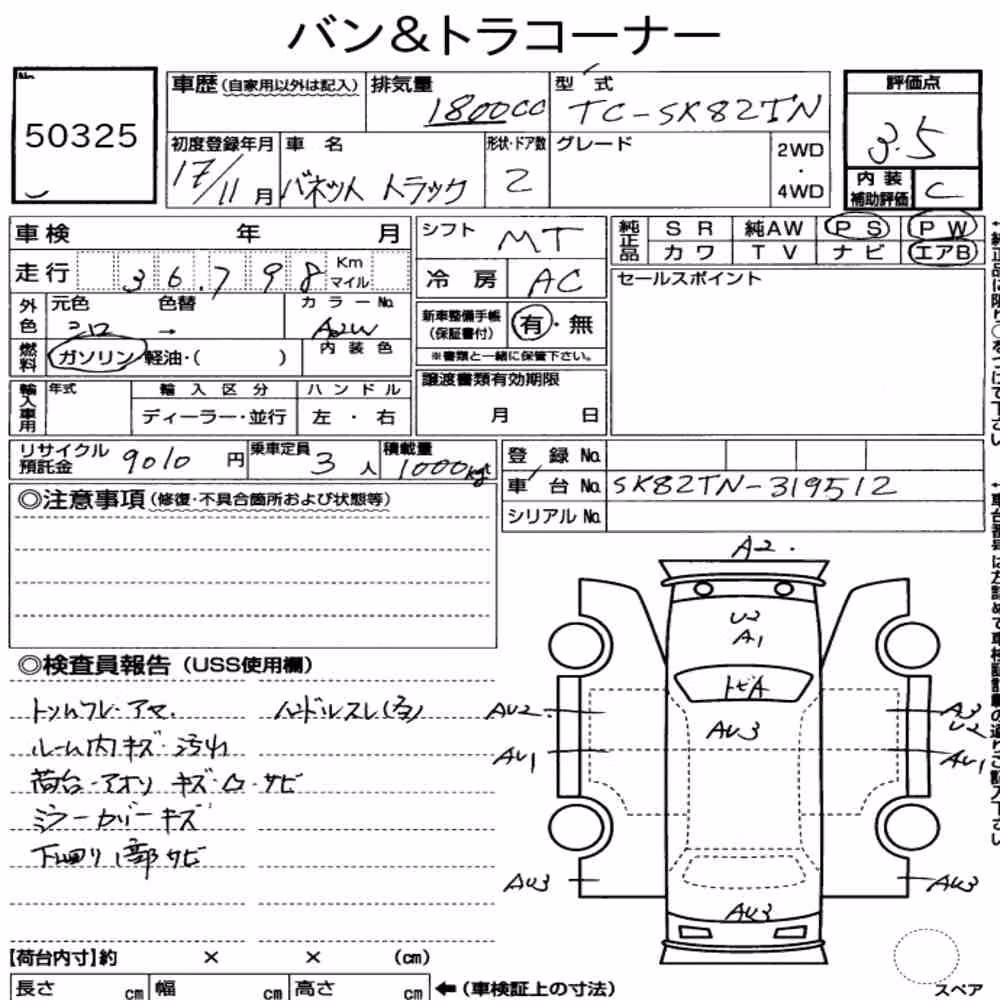 バン&トラコーナー
No.
50325
車歴(自家用以外は記入)
排気量
1800cc
型式
TC-SK82TN
評価点
3.5
内装補助評価
C
初度登録年月
17/11月
車名
バネット トラック
形状・ドア数
2
グレード
2WD
・
4WD
車検 年 月
走行 36,798 Km マイル
外色
元色 シロ
色替 →
カラーNo.
内装色
燃料
ガソリン・軽油・( )
輸入車用
年式
輸入区分
ディーラー・並行
ハンドル
左・右
シフト
MT
冷房
AC
新車整備手帳(保証書付)
有・無
※書類と一緒に保管下さい。
譲渡書類有効期限
月 日
純正品
SR 純AW PS PW
カワ TV ナビ エアB
セールスポイント
リサイクル預託金 9010円
乗車定員 3人
積載量 1000kg
登録No.
車台No. SK82TN-319512
シリアルNo.
◎注意事項(修復・不具合箇所および状態等)
◎検査員報告(USS使用欄)
ハンドルスレ(名)
ルーム内キズ・汚れ
荷台・アオリ キズ・凹・サビ
ミラーカバーキズ
下回り1部サビ
A2.
U2
A1
トビA
AU3
AU2
AU1
AU3
A3
U2
AU1
AU3
AU3
スペア
【荷台内寸】約 × × (cm)
長さ cm 幅 cm 高さ cm ←(車検証上の寸法)